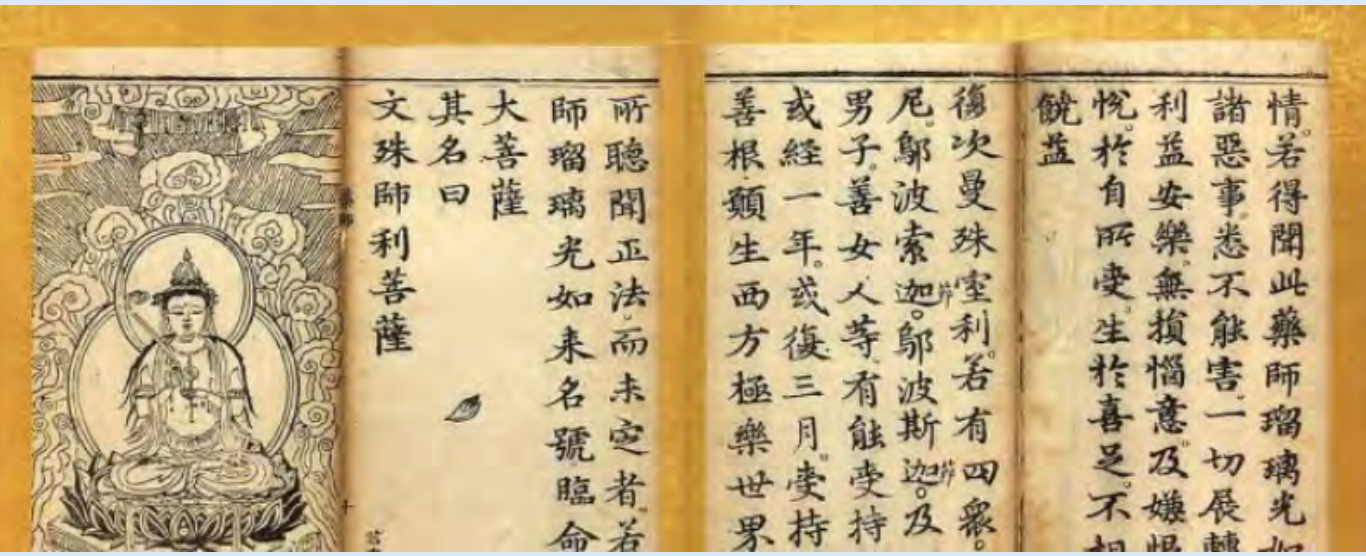 情若得聞此藥師瑠璃光如
諸惡事悉不能害一切展轉
利益安樂無損惱意及嫌恨
悅於自所受生於喜足不相
饒益
復次曼殊室利若有四眾
尼鄔波索迦鄔波斯迦及
男子善女人等有能受持
或經一年或復三月受持
善根願生西方極樂世界
所聽聞正法而未定者若
師瑠璃光如來名號臨命
大菩薩
其名曰
文殊師利菩薩
藥師
十